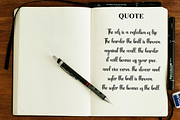 QUOTE
The ols is a reflection of life
The harder the ball is thrown
against the wall, the harder
it will bounce at your face
and vice versa, the slower and
safer the ball is thrown,
the safer the bounce of the ball.